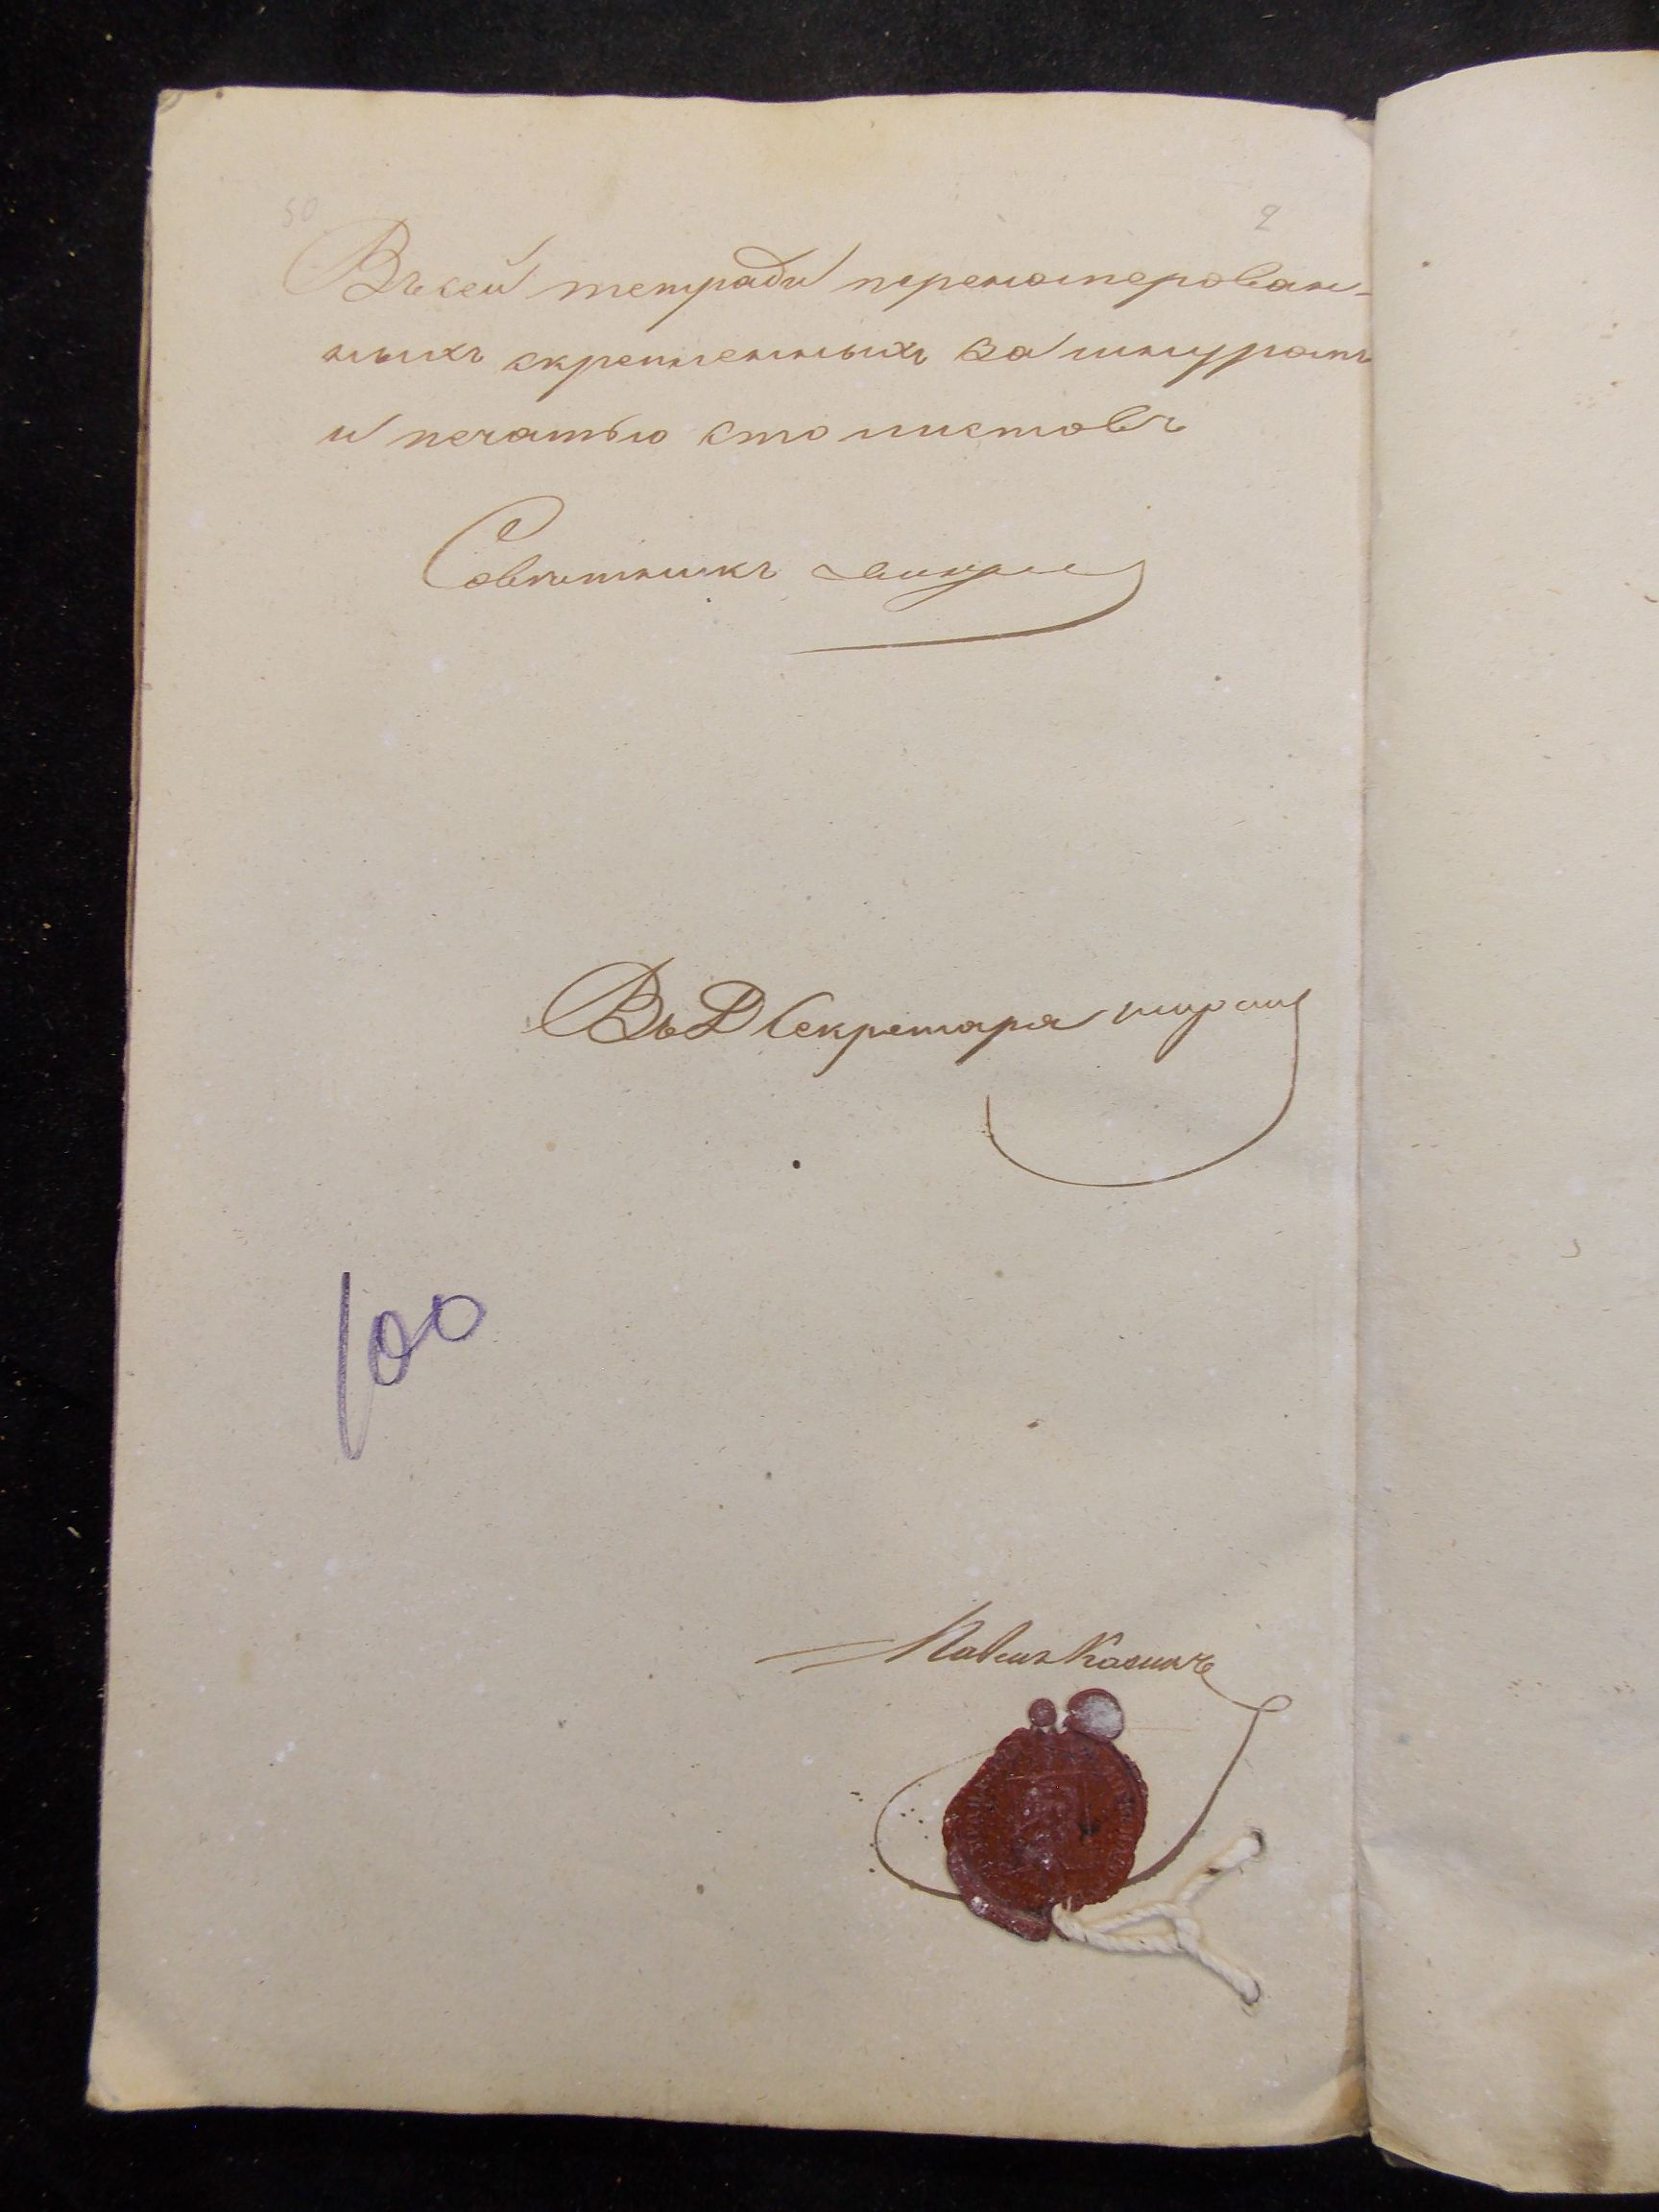 50 2
Въ сей тетради переномерован-
ныхъ скрепленныхъ за шнуромъ
и печатью сто листовъ
Советникъ
ВъД Секретаря
100
Павелъ